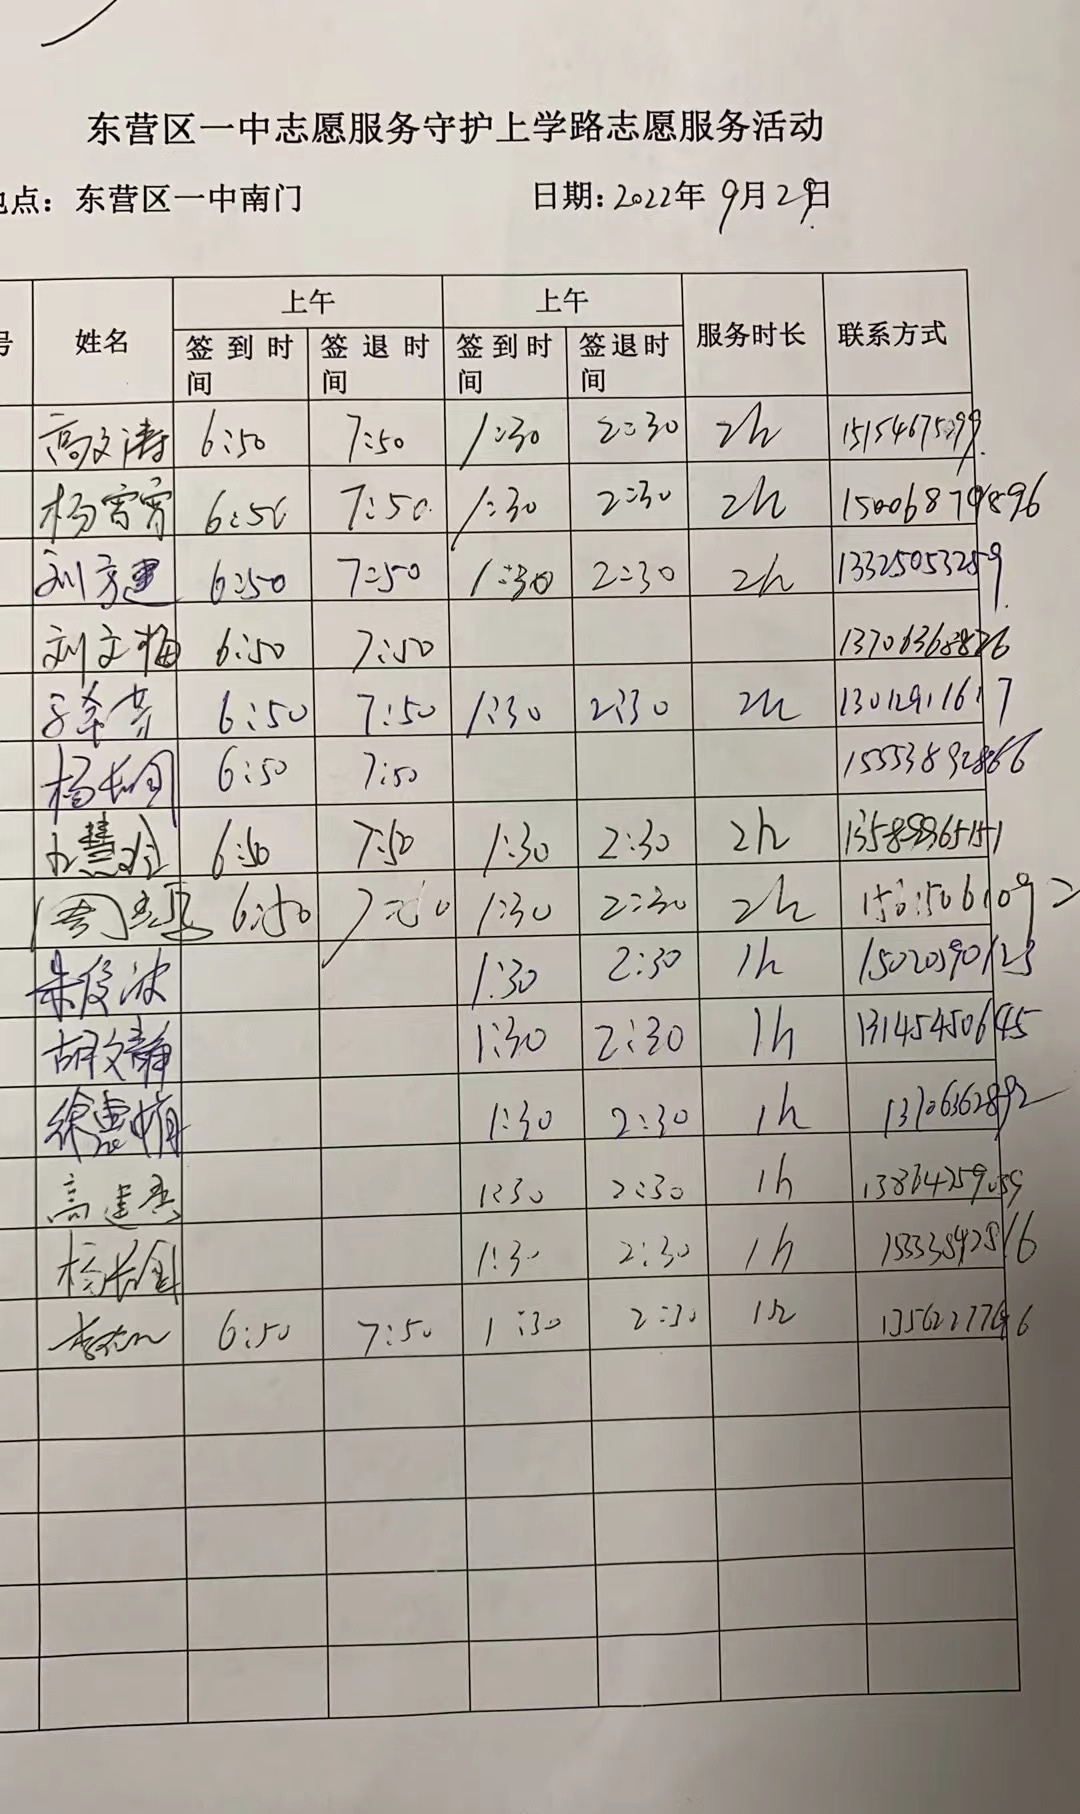 东营区一中志愿服务守护上学路志愿服务活动
点：东营区一中南门 日期：2022年9月29日
号 姓名 上午 上午 服务时长 联系方式
签到时间 签退时间 签到时间 签退时间
高文涛 6:50 7:50 1:30 2:30 2h
杨霄霄 6:50 7:50 1:30 2:30 2h 15006879896
刘方建 6:50 7:50 1:30 2:30 2h 13325053259
刘文梅 6:50 7:50 13706368826
6:50 7:50 1:30 2:30 2h
杨长 6:50 7:50 15553892866
慧 6:50 7:50 1:30 2:30 2h
6:50 7:50 1:30 2:30 2h
朱俊波 1:30 2:30 1h
胡文静 1:30 2:30 1h 13145450645
徐惠娟 1:30 2:30 1h 13706362892
高建 1:30 2:30 1h
杨长 1:30 2:30 1h
李 6:50 7:50 1:30 2:30 1h